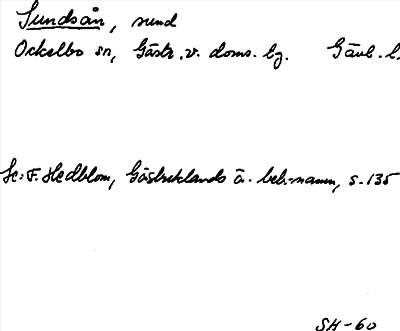 Sundsån, sund
Ockelbo sn, Gästr. v. doms. bg. Gävl. l.
Se: F. Hedblom, Gästriklands ä. beb.namn, s. 135
SH-60